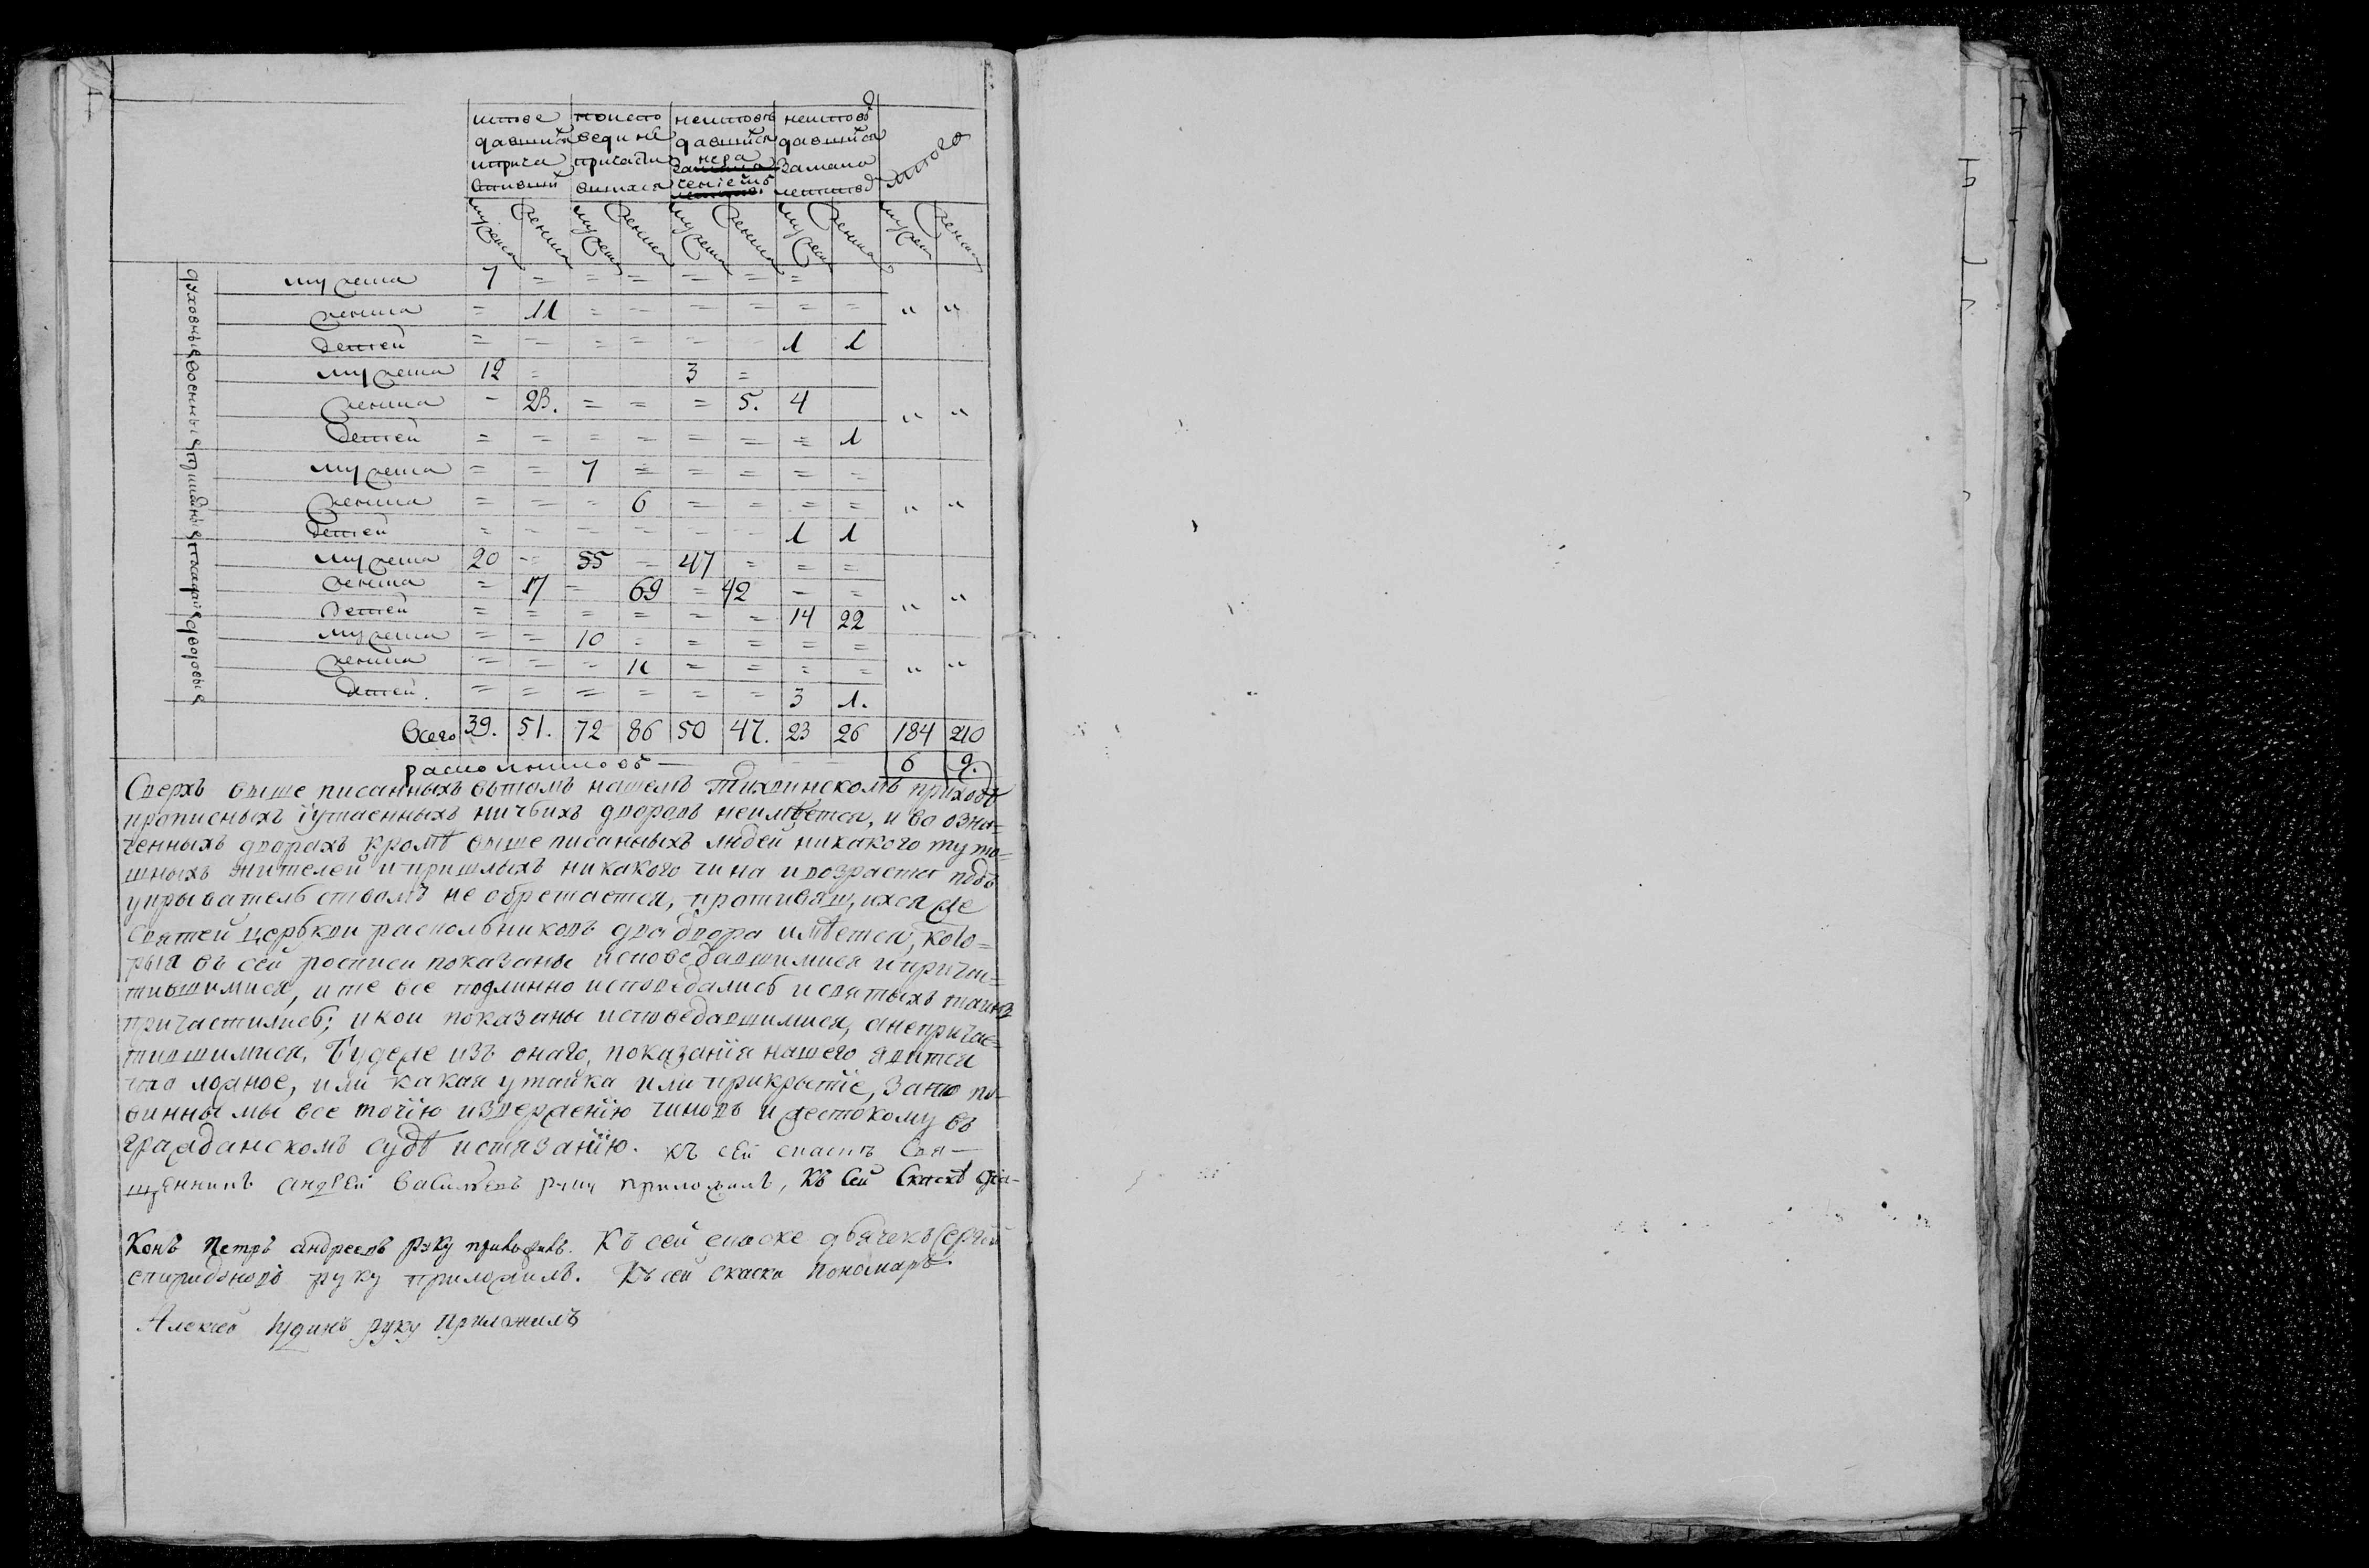 испове | по испо | неисповѣ | неисповѣ | итого
давшийся | веди не | давшийся | давшийся
и прича | причасти | нера | за мало
стивший | вшихся | чениемъ | летствѡ
мужеска женска мужеска женска мужеска женска мужеска женска мужеска женска
духовные
мужеска 7 = = = = = =
женска = 11 = = = = = = " "
детей = = = = = = 1 1
военные
мужеска 12 = 3 =
женска = 23. = = = 5. 4 " "
детей = = = = = = = 1
мужеска = = 7 = = = = =
женска = = = 6 = = = = " "
детей = = = = = = 1 1
мужеска 20 = 55 = 47 = = =
женска = 17 = 69 = 42 = =
детей = = = = = = 14 22 " "
дворовые
мужеска = = 10 = = = = =
женска = = = 11 = = = = " "
детей. = = = = = = 3 1.
всего 39. 51. 72 86 50 47. 23 26 184 210
расколниковъ — 6 9.
Сверхъ выше писанныхъ вътомъ нашемъ тихвинскомъ приходѣ
прописныхъ їутаенныхъ ничьихъ дворовъ неимѣется, и во озна=
ченныхъ дворахъ кромѣ выше писанныхъ людей никакого туто=
шныхъ жителей и пришлыхъ никакого чина и возраста подъ
укрывательствомъ не обретается, противящихся же
святей церькви раскольниковъ два двора имѣется, кото=
рыя въ сей росписи показаны исповедавшимися и прича=
тившимися, и те все подлинно исповедались и святыхъ таинъ
причастились; и кои показаны исповедавшимися, а непричас=
тившимися. Будеже изъ онаго, показанїя нашего явится
что ложное, или какая утайка или прикрытїе, за то по=
винны мы все точїю изверженїю чиновъ и жестокому въ
гражданскомъ судѣ истязанїю. къ сей скаскѣ Свя—
щенникъ андрей василїевъ руку приложилъ, Къ Сей Скаскѣ дїа-
конъ Петръ андреевъ руку приложилъ. Къ сей скаске дьячекъ Сергей
спиридоновъ руку приложилъ. Къ сей скаски Пономарь
Алексей Юдинъ руку приложилъ